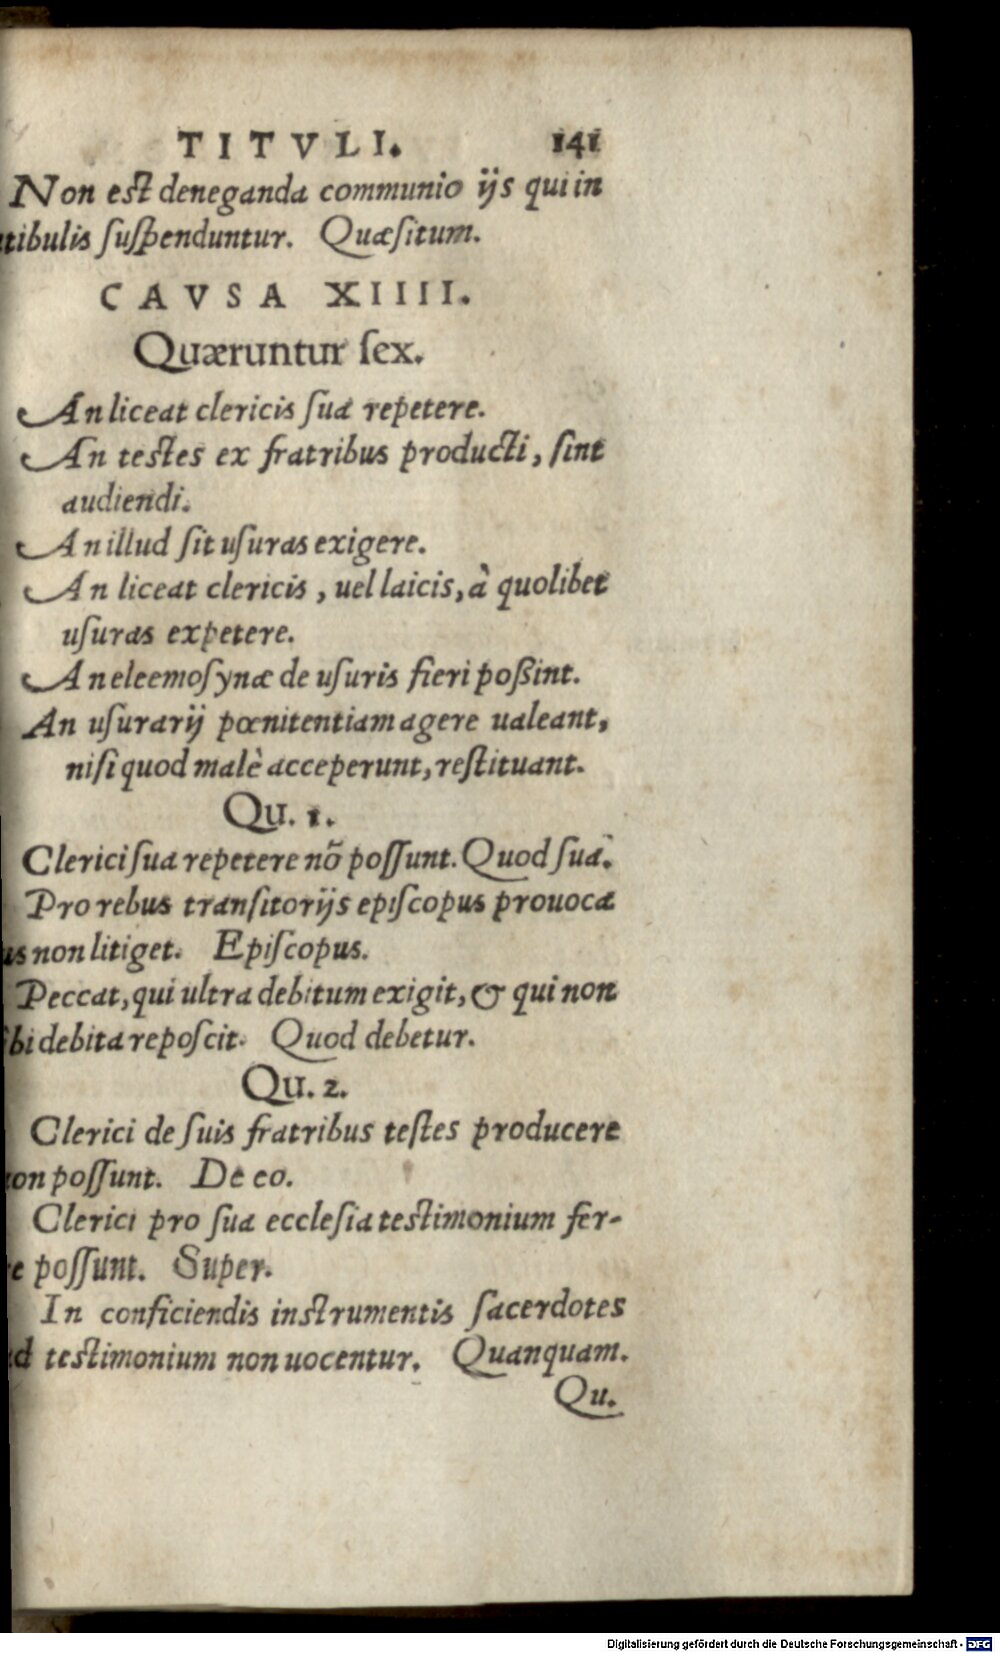 TITVLI. 141
Non est deneganda communio ijs qui in
tibulis suspenduntur. Quæsitum.
CAVSA XIIII.
Quæruntur sex.
An liceat clericis sua repetere.
An testes ex fratribus producti, sint
audiendi.
An illud sit usuras exigere.
An liceat clericis, uel laicis, à quolibet
usuras expetere.
An eleemosynæ de usuris fieri poßint.
An usurarij pœnitentiam agere ualeant,
nisi quod malè acceperunt, restituant.
Qu. 1.
Clerici sua repetere nõ possunt. Quod sua.
Pro rebus transitorijs episcopus prouoca
us non litiget. Episcopus.
Peccat, qui ultra debitum exigit, & qui non
bi debita reposcit. Quod debetur.
Qu. 2.
Clerici de suis fratribus testes producere
on possunt. De eo.
Clerici pro sua ecclesia testimonium fer-
e possunt. Super.
In conficiendis instrumentis sacerdotes
d testimonium non uocentur. Quanquam.
Qu.
Digitalisierung gefördert durch die Deutsche Forschungsgemeinschaft - DFG